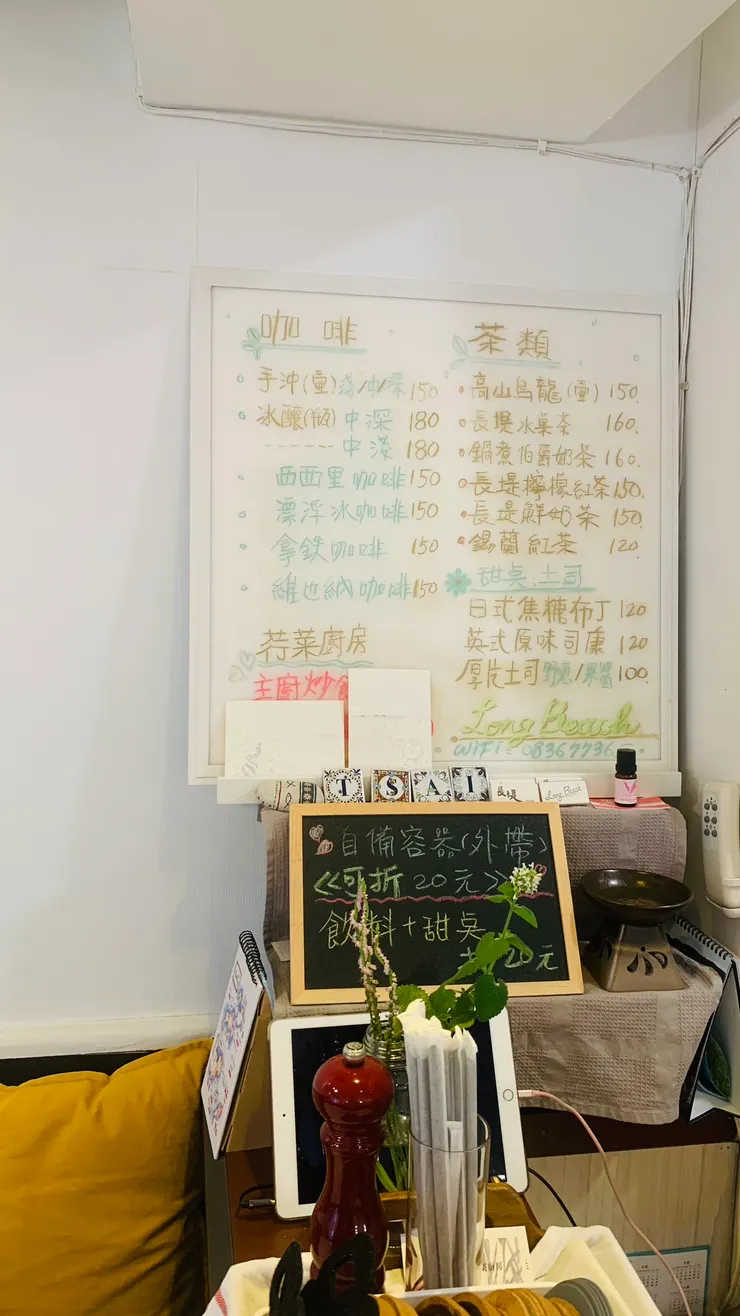 咖啡
手沖(壷)淺/中/深 150
冰釀(瓶)中深 180
------中淺 180
西西里咖啡 150
漂浮冰咖啡 150
拿鉄咖啡 150
維也納咖啡 150
荇菜廚房
主廚炒
茶類
高山烏龍(壷) 150.
長堤水菓茶 160.
鍋煮伯爵奶茶 160.
長堤檸檬紅茶 150.
長堤鮮奶茶 150.
錫蘭紅茶 120
甜点.土司
日式焦糖布丁 120
英式原味司康 120
厚片土司 /果醬 100.
Long Beach
WiFi: 08367736
TSAI
長堤
Long Beach
自備容器(外帶)
<<可折20元>>
飲料+甜点
20元